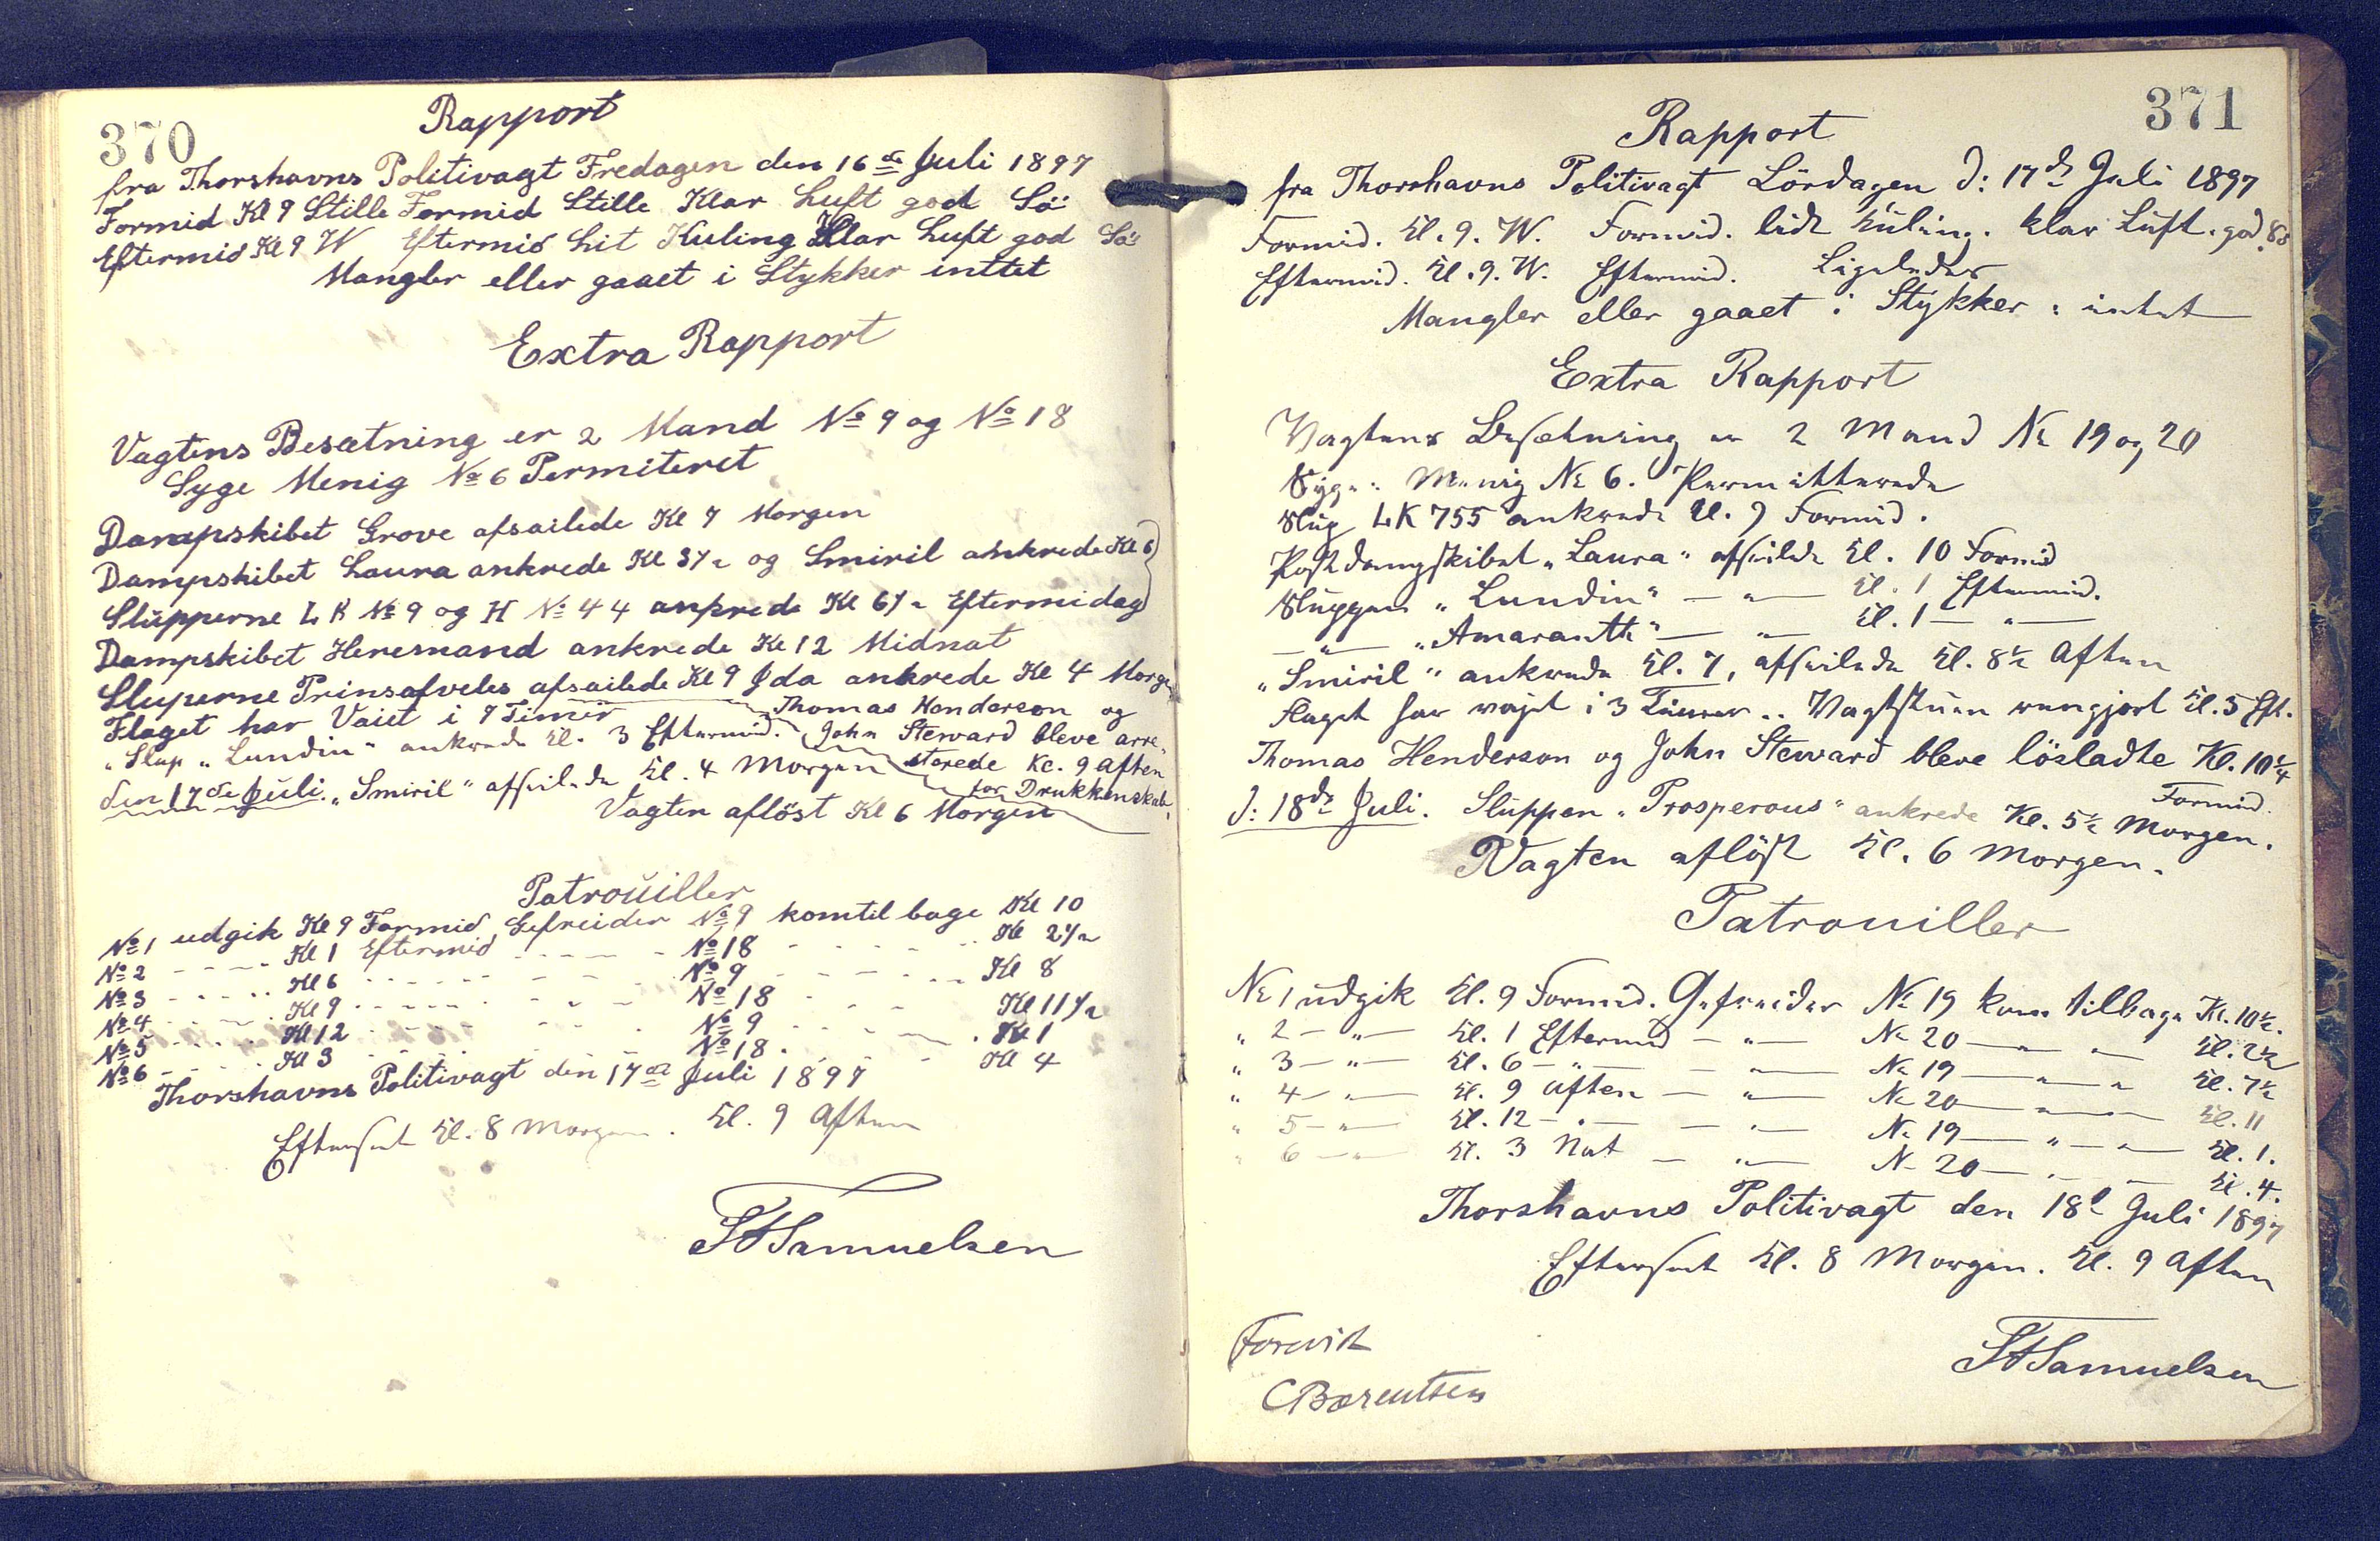 370
Rapport
fra Thorshavns Politivagt Fredagen den 16de Juli 1897
Formid Kl 9 Stille Formid Stille Klar Luft god Sö
Eftermid Kl 9 W Eftermid Lit Kuling Klar Luft god Sö
Mangler eller gaaet i Stykker inttet
Extra Rapport
Vagtens Besætning er 2 Mand No 9 og No 18
Syge Menig No 6 Permiteret
Dampskibet Grove afsailede Kl 7 Morgen
Dampskibet Laura ankrede Kl 3½ og Smiril ankrede Kl 6
Slüpperne LK No 9 og H No 44 ankrede Kl 6½ Eftermidag
Dampskibet Heremand ankrede Kl 12 Midnat
Sluperne Prinsafveles afsailede Kl 9 Ida ankrede Kl 4 Morge
Flaget har Vaiet i 7 Timir
Thomas Henderson og
"Slup "Lundin" ankrede Kl. 3 Eftermid. John Steward bleve arre-
den 17de Juli. "Smiril" afseilede Kl. 4 Morgen sterede Kl. 9 Aften
for Drukkenskab.
Vagten aflöst Kl 6 Morgen
Patroüiller
No 1 udgik Kl 9 Formid Gefreider No 9 komtil bage Kl 10
No 2 - - - - Kl 1 Eftermid - - - - No 18 - - - - Kl 2½
No 3 - - - - Kl 6 - - - - No 9 - - - - Kl 8
No 4 - - - - Kl 9 - - - - No 18 - - - - Kl 11½
No 5 - - - - Kl 12 - - - - No 9 - - - - Kl 1
No 6 - - - - Kl 3 - - - - No 18 - - - - Kl 4
Thorshavns Politivagt den 17de Juli 1897
Efterset Kl. 8 Morgen. Kl. 9 Aften
Samuelsen
371
Rapport
fra Thorshavns Politivagt Lördagen d: 17de Juli 1897
Formid. Kl. 9. W. Formid. lidt Küling. klar Lüft. god Sö
Eftermid. Kl. 9. W. Eftermid. Ligeledes
Mangler eller gaaet i Stykker: intet
Extra Rapport
Vagtens Besætning er 2 Mand No 19 og 20
Syge: Menig No 6. Permitterede
Slüp LK 755 ankrede Kl. 9 Formid.
Postdampskibet "Laura" afseilede Kl. 10 Formid
Slüppen "Lundin" — " — Kl. 1 Eftermid.
— " — "Amaranth" — " — Kl. 1 — " —
"Smiril" ankrede Kl. 7, afseilede Kl. 8½ Aften
Flaget har vajet i 3 Timer.. Vagtstüen rengjort Kl. 5 Eft.
Thomas Henderson og John Steward bleve lösladte Kl. 10¼
Formid.
d: 18de Juli. Slüppen "Prosperous" ankrede Kl. 5½ Morgen.
Vagten aflöst Kl. 6 Morgen.
Patrouiller
No 1 udgik Kl. 9 Formid. Gefreider No 19 kom tilbage Kl. 10½.
" 2 — " — Kl. 1 Eftermid — " — No 20 — " — " Kl. 2½
" 3 — " — Kl. 6 — " — — " — No 19 — " — " Kl. 7½
" 4 — " — Kl. 9 Aften — " — No 20 — " — " Kl. 11
" 5 — " — Kl. 12 — " — — " — No 19 — " — " Kl. 1.
" 6 — " — Kl. 3 Nat — " — No 20 — " — Kl. 4.
Thorshavns Politivagt den 18d Juli 1897
Efterset Kl. 8 Morgen. Kl. 9 Aften
Samuelsen
Forevist
CBærentsen